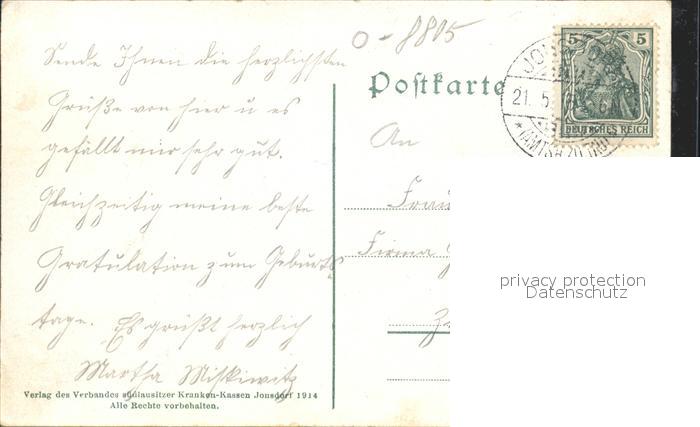 Sende Ihnen die herzlichsten
Grüße von hier u es
gefällt mir sehr gut.
Gleichzeitig meine beste
Gratulation zum Geburts
tage. Es grüßt herzlich
Martha
Verlag des Verbandes südlausitzer Kranken-Kassen Jonsdorf 1914
Alle Rechte vorbehalten.
0-8805
Postkarte
5 5
DEUTSCHES REICH
21. 5.
An
Firma
privacy protection
Datenschutz